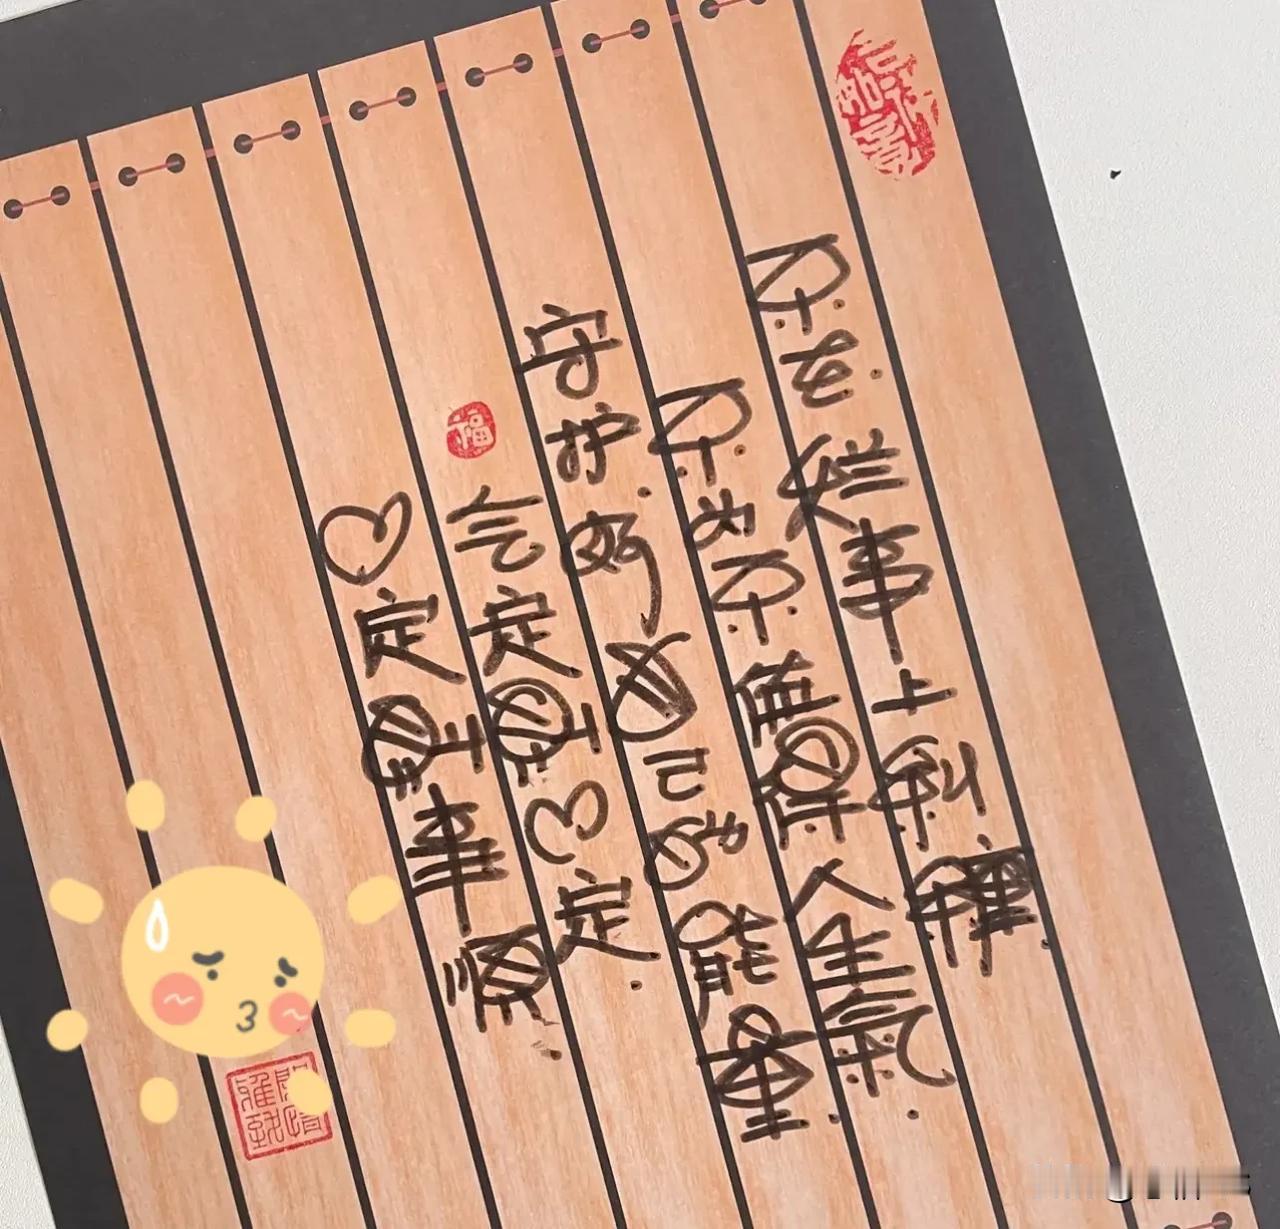 不在烂事上纠缠
不为不值得人生氣
守护好自己的能量
气定神心定
心定神事順
福